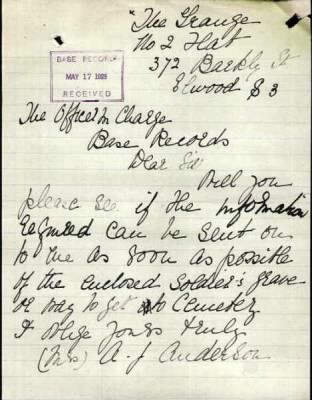 "The Grange
No 2 Flat
372 Barkly St
Elwood S 3
BASE RECORDS
MAY 17 1928
RECEIVED
The Officer In Charge
Base Records
Dear Sir
Will you
please see if the information
required can be sent on
to me as soon as possible
of the enclosed Soldier's grave
or way to get to Cemetery
& oblige Yours truly
(Mrs) A. J Anderson